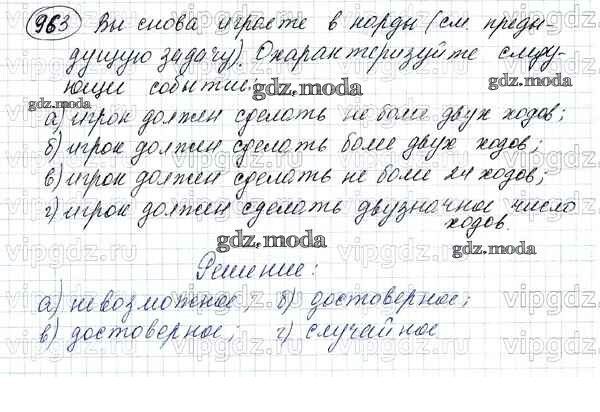 963 Вы снова играете в нарды (см. преды-
дущую задачу). Охарактеризуйте следу-
ющие событие: gdz.moda gdz.moda
gdz.moda
а) игрок должен сделать не более двух ходов;
б) игрок должен сделать более двух ходов;
в) игрок должен сделать не более 24 ходов;
г) игрок должен сделать двузначное число
ходов.
gdz.moda gdz.moda
Решение:
а) невозможное; б) достоверное;
в) достоверное; г) случайное